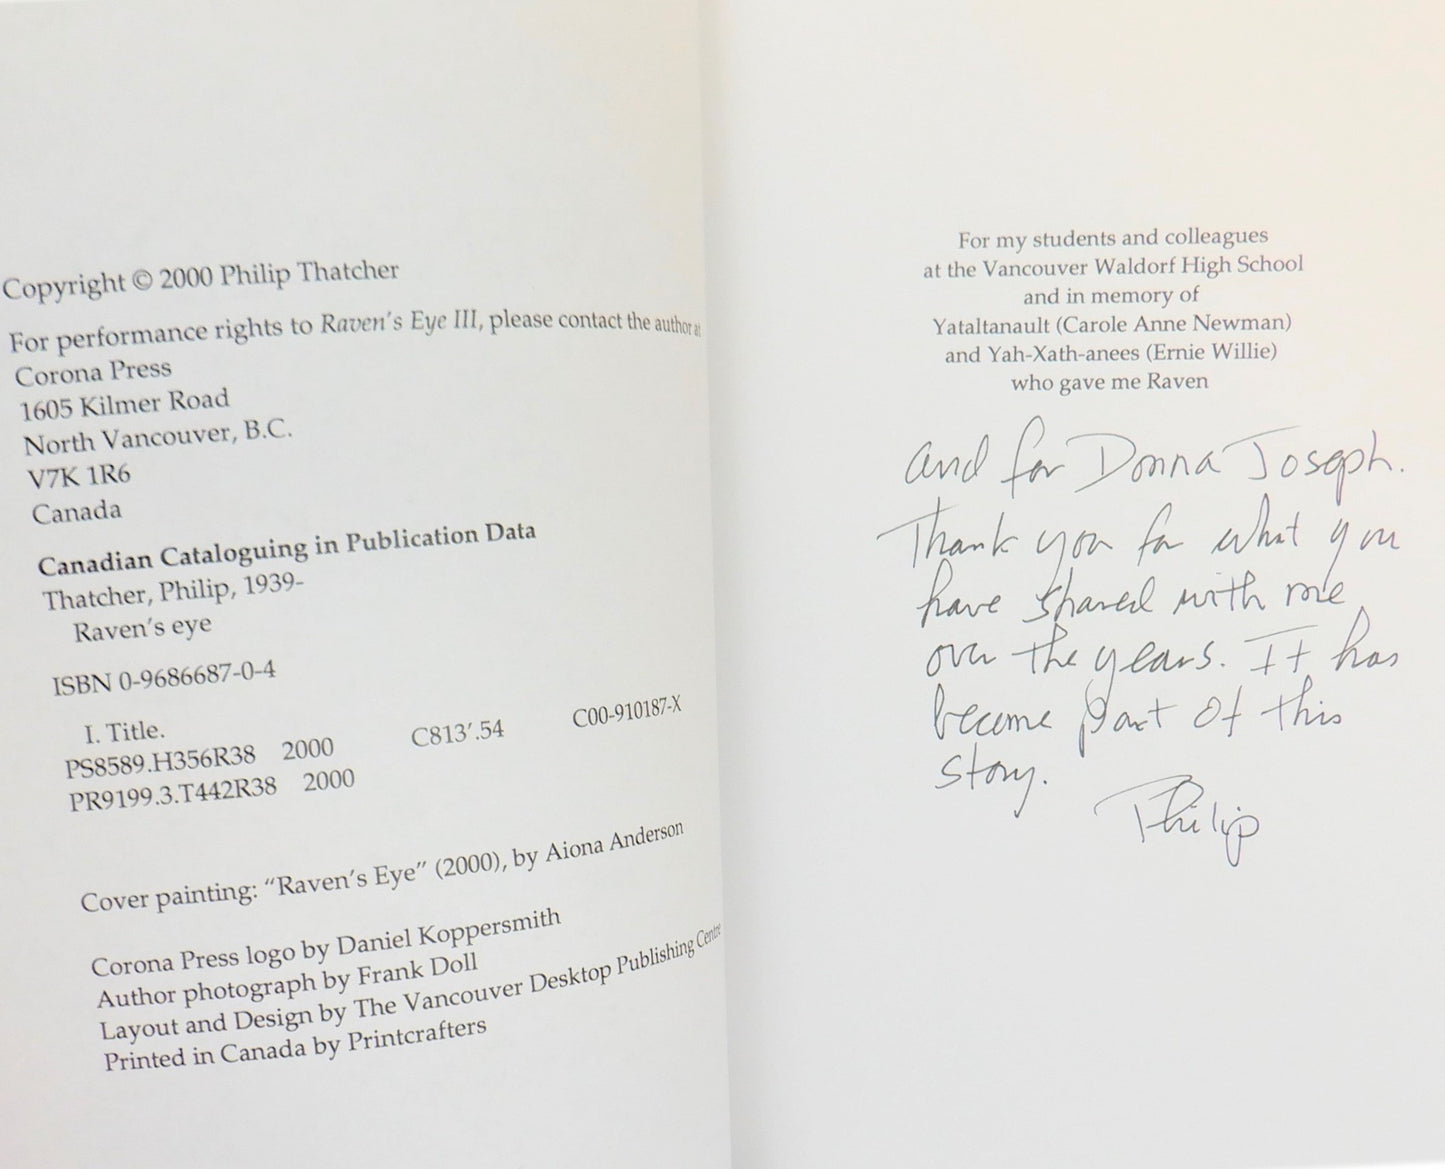 Copyright © 2000 Philip Thatcher
For performance rights to Raven's Eye III, please contact the author at
Corona Press
1605 Kilmer Road
North Vancouver, B.C.
V7K 1R6
Canada
Canadian Cataloguing in Publication Data
Thatcher, Philip, 1939-
Raven's eye
ISBN 0-9686687-0-4
I. Title.
PS8589.H356R38 2000 C813'.54 C00-910187-X
PR9199.3.T442R38 2000
Cover painting: "Raven's Eye" (2000), by Aiona Anderson
Corona Press logo by Daniel Koppersmith
Author photograph by Frank Doll
Layout and Design by The Vancouver Desktop Publishing Centre
Printed in Canada by Printcrafters
For my students and colleagues
at the Vancouver Waldorf High School
and in memory of
Yataltanault (Carole Anne Newman)
and Yah-Xath-anees (Ernie Willie)
who gave me Raven
and for Donna Joseph.
Thank you for what you
have shared with me
over the years. It has
become part of this
story.
Philip